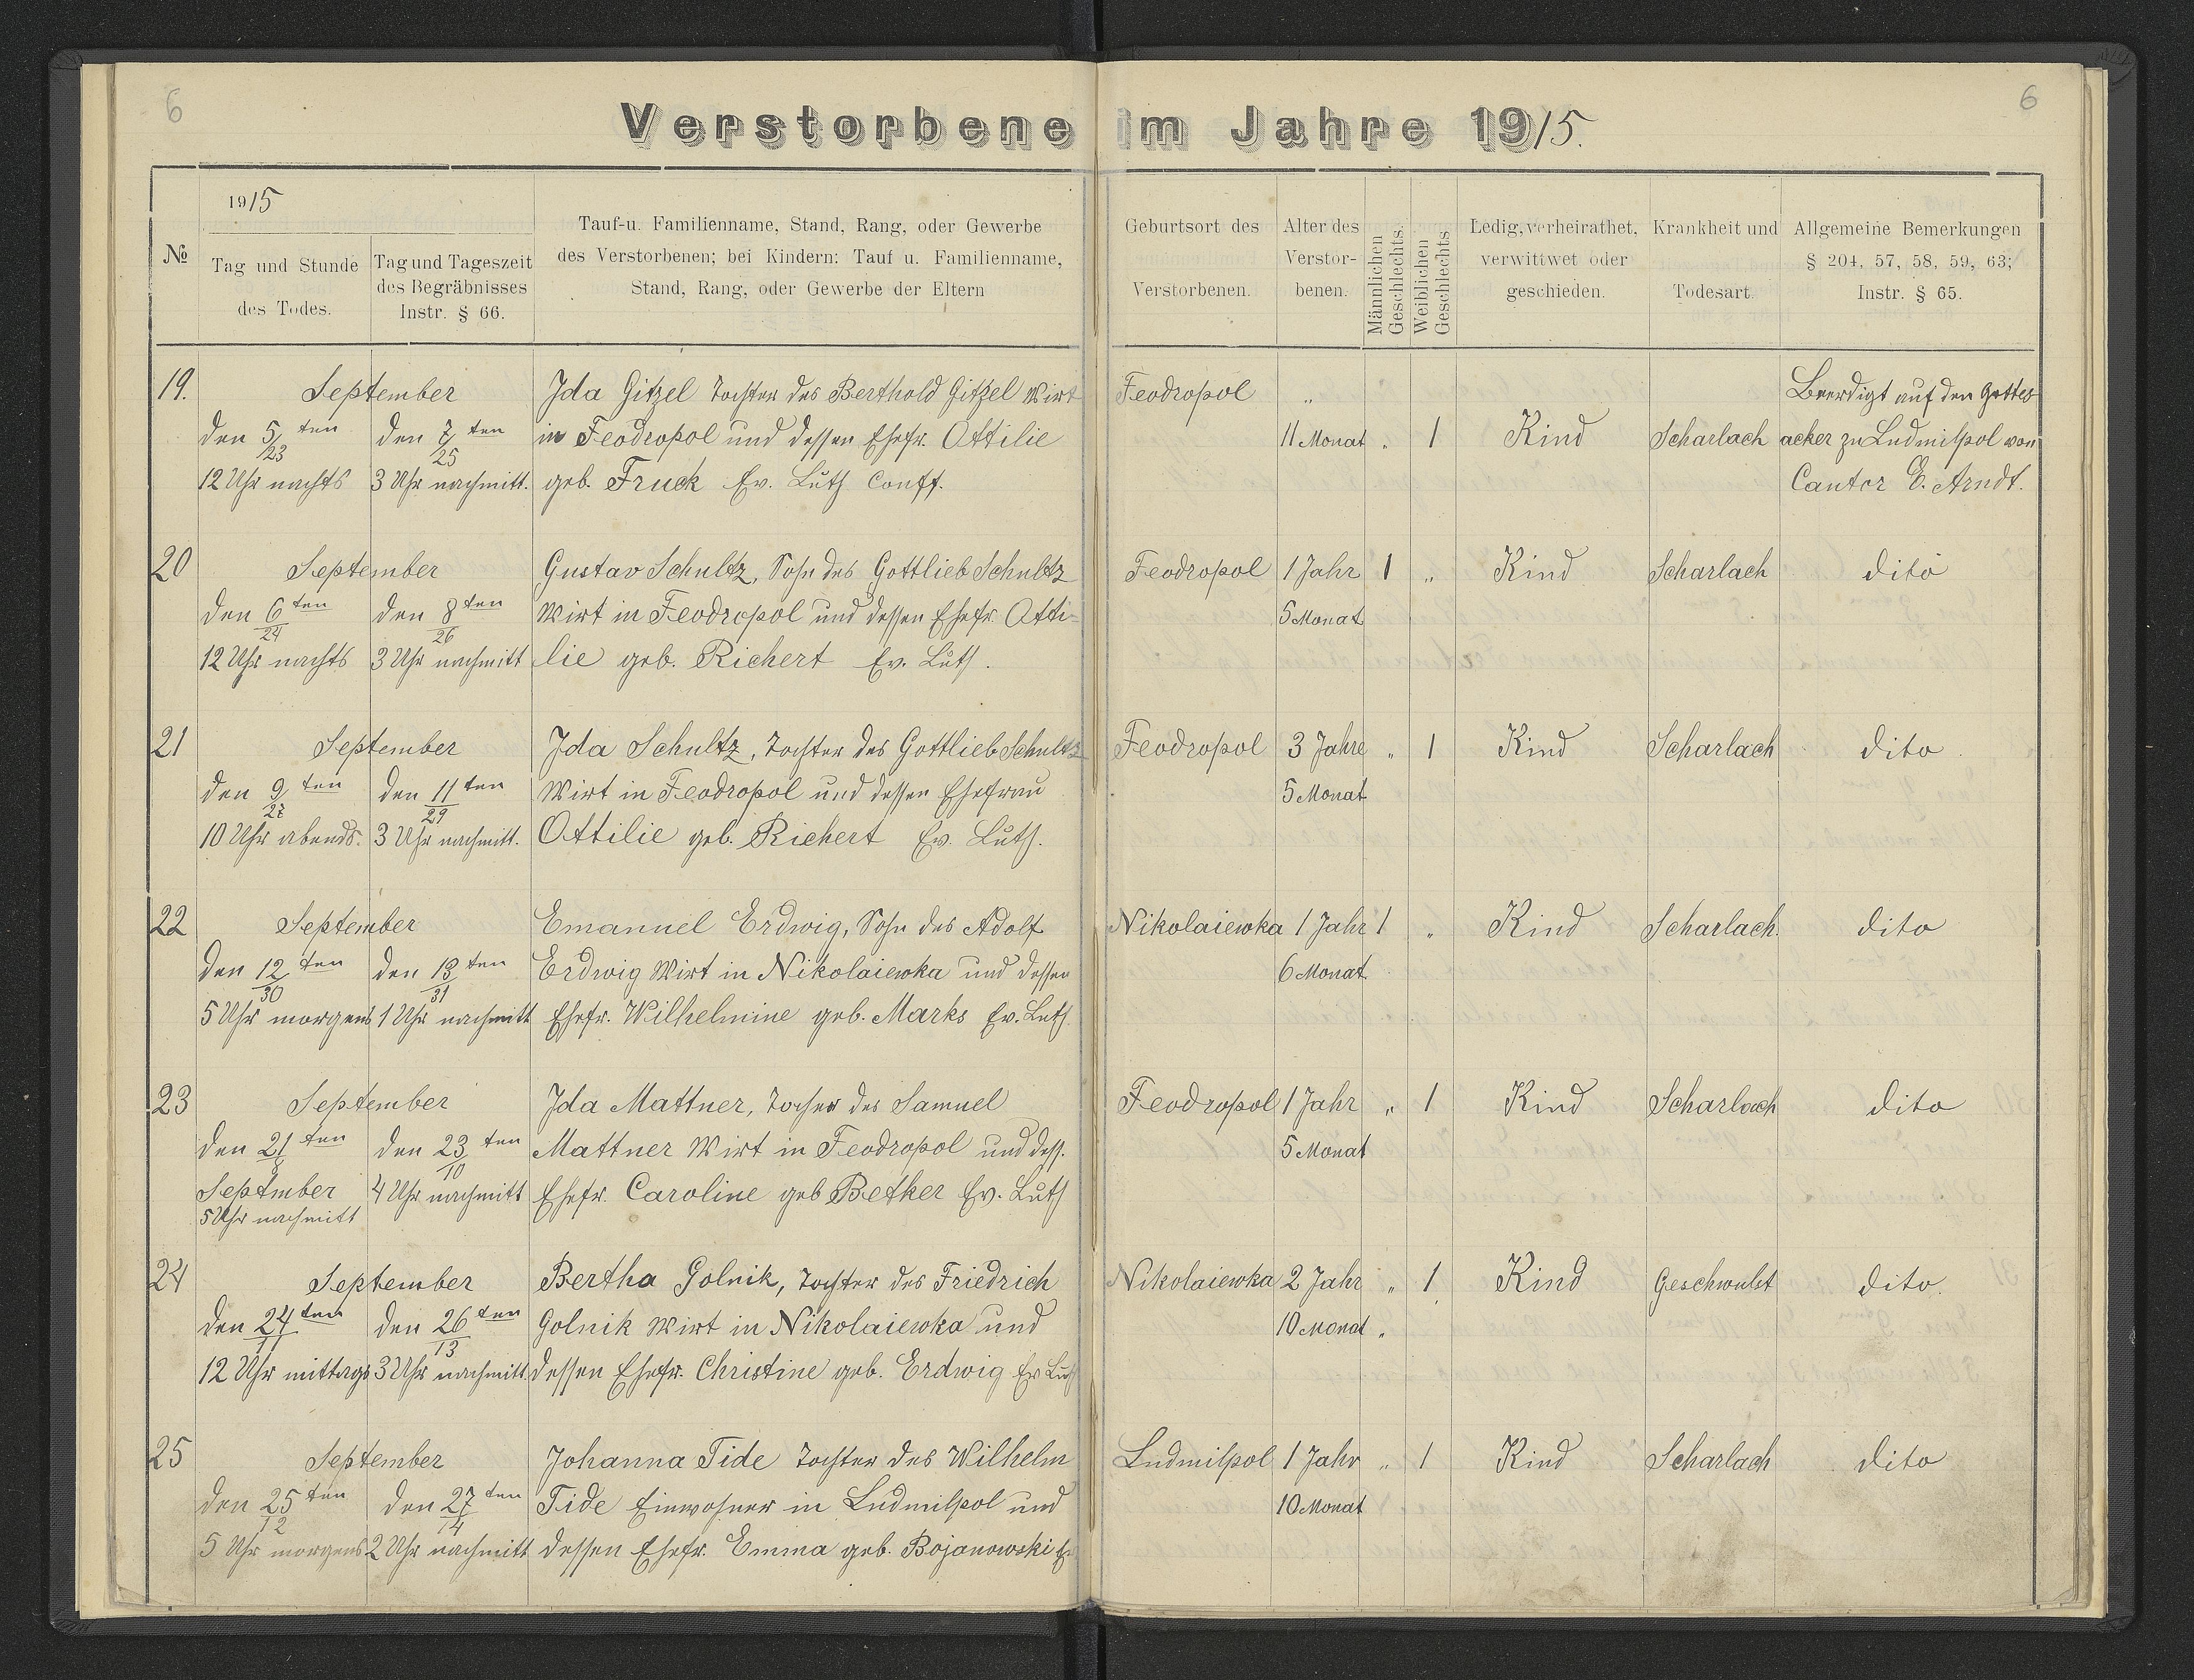 6
6
Verstorbene im Jahre 1915.
№
1915
Tag und Stunde
des Todes.
Tag und Tageszeit
des Begräbnisses
Instr. § 66.
Tauf-u. Familienname, Stand, Rang, oder Gewerbe
des Verstorbenen; bei Kindern: Tauf u. Familienname,
Stand, Rang, oder Gewerbe der Eltern
Geburtsort des
Verstorbenen.
Alter des
Verstor-
benen.
Männlichen
Geschlechts.
Weiblichen
Geschlechts
Ledig, verheirathet,
verwittwet oder
geschieden.
Krankheit und
Todesart.
Allgemeine Bemerkungen
§ 204, 57, 58, 59, 63;
Instr. § 65.
19. September Ida Gitzel Tochter des Berthold Gitzel Wirt Feodropol „ Beerdigt auf den Gottes
den 5/23 ten den 7/25 ten in Feodropol und dessen Ehefr. Ottilie 11 Monat „ 1 Kind Scharlach acker zu Ludmilpol von
12 Uhr nachts 3 Uhr nachmitt. geb. Fruck Ev. Luth Conff. Cantor E. Arndt.
20 September Gustav Schultz, Sohn des Gottlieb Schultz Feodropol 1 Jahr 1 „ Kind Scharlach dito
den 6/24 ten den 8/26 ten Wirt in Feodropol und dessen Ehefr. Otti- 5 Monat
12 Uhr nachts 3 Uhr nachmitt lie geb. Richert Ev. Luth.
21 September Ida Schultz, Tochter des Gottlieb Schultz Feodropol 3 Jahre „ 1 Kind Scharlach dito
den 9/27 ten den 11/29 ten Wirt in Feodropol und dessen Ehefrau 5 Monat
10 Uhr abends. 3 Uhr nachmitt. Ottilie geb. Richert Ev. Luth.
22 September Emanuel Erdwig, Sohn des Adolf Nikolaiewka 1 Jahr 1 „ Kind Scharlach. dito
den 12/30 ten den 13/31 ten Erdwig Wirt in Nikolaiewka und dessen 6 Monat
5 Uhr morgens 1 Uhr nachmitt Ehefr. Wilhelmine geb. Marks Ev. Luth
23 September Ida Mattner, Tocher des Samuel Feodropol 1 Jahr „ 1 Kind Scharlach dito
den 21/8 ten den 23/10 ten Mattner Wirt in Feodropol und dess. 5 Monat
September 4 Uhr nachmitt Ehefr. Caroline geb Betker Ev. Luth
5 Uhr nachmitt
24 September Bertha Golnik, Tochter des Friedrich Nikolaiewka 2 Jahr „ 1 Kind Geschwulst dito.
den 24/11 ten den 26/13 ten Golnik Wirt in Nikolaiewka und 10 Monat „
12 Uhr mittags 3 Uhr nachmitt. dessen Ehefr. Christine geb. Erdwig Ev Luth
25 September Johanna Tide Tochter des Wilhelm Ludmilpol 1 Jahr „ 1 Kind Scharlach dito
den 25/12 ten den 27/14 ten Tide Einwohner in Ludmilpol und 10 Monat
5 Uhr morgens 2 Uhr nachmitt dessen Ehefr. Emma geb. Bojanowski Ev